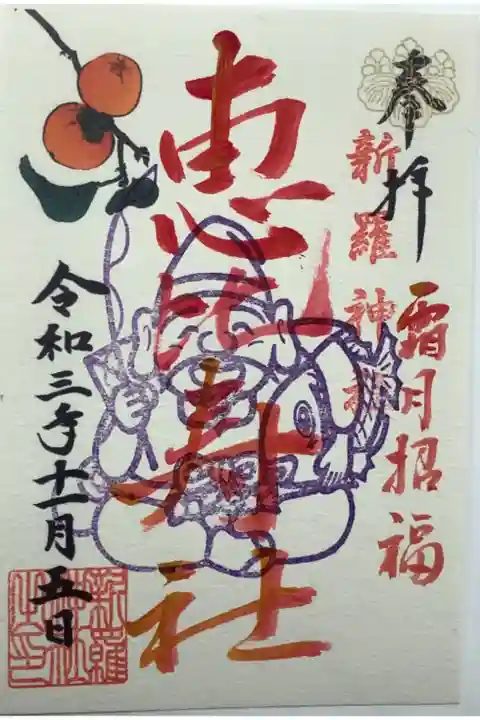 奉拝
新羅神社
霜月招福
恵比寿社
令和三年十一月五日
新羅
神社
之印